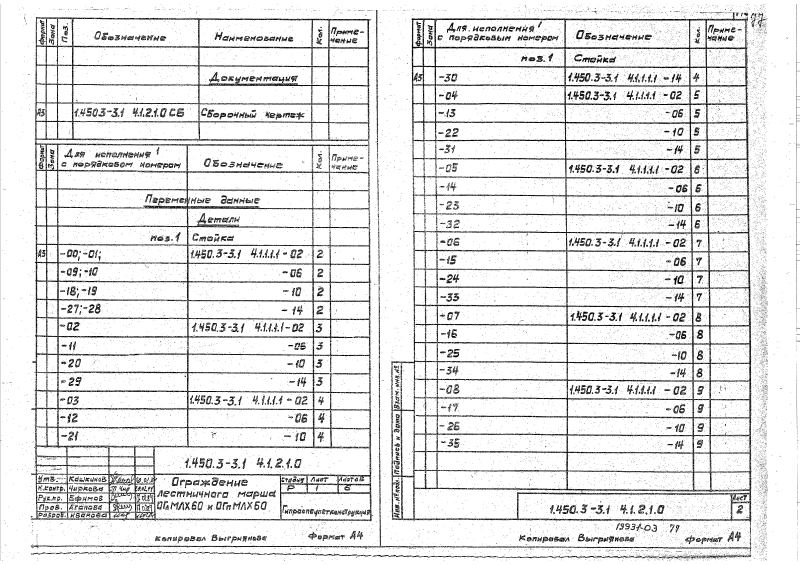 Формат Зона Поз. Обозначение Наименование Кол. Приме-чание
Документация
А3 1.450.3-3.1 4.1.2.1.0 СБ Сборочный чертеж
Формат Зона Для исполнения с порядковым номером Обозначение Кол. Приме-чание
Переменные данные
Детали
поз.1 Стойка
А5 -00;-01; 1.450.3-3.1 4.1.1.1.1-02 2
-09;-10 -06 2
-18;-19 -10 2
-27;-28 -14 2
-02 1.450.3-3.1 4.1.1.1.1-02 3
-11 -06 3
-20 -10 3
-29 -14 3
-03 1.450.3-3.1 4.1.1.1.1-02 4
-12 -06 4
-21 -10 4
1.450.3-3.1 4.1.2.1.0
Утв. Кашкинов
К.контр. Чиркова
Рук.пр. Ефимов
Пров. Агапова
Разраб. Ивекова
Ограждение
лестничного марша
ОГнМЛХ60 и ОГпМЛХ60
Стадия Лист Листов
Р 1 6
Гипроспецлегконструкция
Копировал Выгриянова Формат А4
Формат Зона Для исполнения с порядковым номером Обозначение Кол. Приме-чание
поз.1 Стойка
А5 -30 1.450.3-3.1 4.1.1.1.1-14 4
-04 1.450.3-3.1 4.1.1.1.1-02 5
-13 -06 5
-22 -10 5
-31 -14 5
-05 1.450.3-3.1 4.1.1.1.1-02 6
-14 -06 6
-23 -10 6
-32 -14 6
-06 1.450.3-3.1 4.1.1.1.1-02 7
-15 -06 7
-24 -10 7
-33 -14 7
-07 1.450.3-3.1 4.1.1.1.1-02 8
-16 -06 8
-25 -10 8
-34 -14 8
-08 1.450.3-3.1 4.1.1.1.1-02 9
-17 -06 9
-26 -10 9
-35 -14 9
Инв.№подл. Подпись и дата Взам.инв.№
1.450.3-3.1 4.1.2.1.0
Лист
2
19931-03 79
Копировал Выгриянова Формат А4